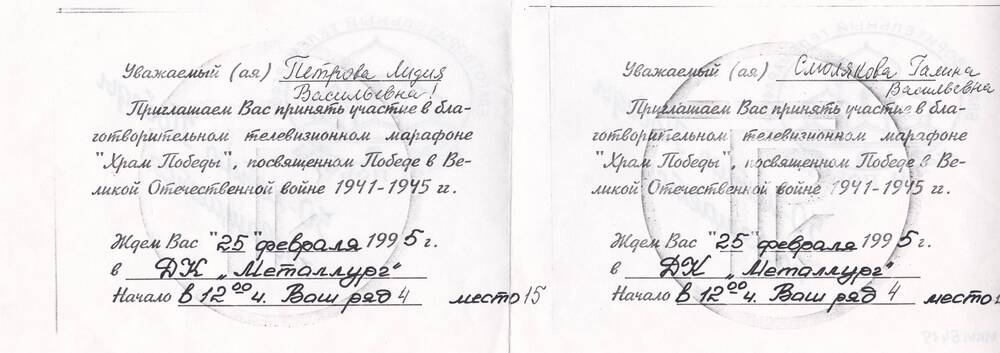 Уважаемый (ая) Петрова Лидия
Васильевна!
Приглашаем Вас принять участие в бла-
готворительном телевизионном марафоне
"Храм Победы", посвященном Победе в Ве-
ликой Отечественной войне 1941-1945 гг.
Ждем Вас "25" февраля 1995 г.
в ДК „Металлург"
Начало в 12 00 ч. Ваш ряд 4 место 15
Уважаемый (ая) Смолякова Галина
Васильевна
Приглашаем Вас принять участие в бла-
готворительном телевизионном марафоне
"Храм Победы", посвященном Победе в Ве-
ликой Отечественной войне 1941-1945 гг.
Ждем Вас "25" февраля 1995 г.
в ДК „Металлург"
Начало в 12 00 ч. Ваш ряд 4 место